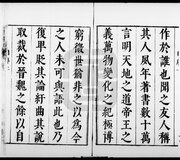 作於誰也聞之友人稱
其人風年著書數十萬
言明天地之道帝王之
義萬物變化之紀極博
窮微世翁非之以為今
之人未可與語此也乃
復卑貶其論紆曲其說
取裁於晉魏之餘以自